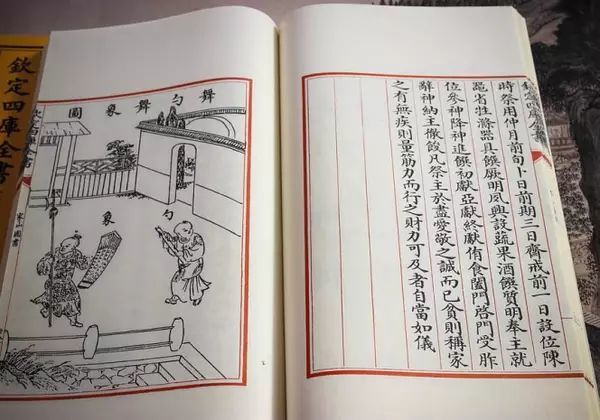 時祭用仲月前旬卜日前期三日齊戒前一日設位陳
器省牲滌器具饌厥明夙興設蔬果酒饌質明奉主就
位參神降神進饌初獻亞獻終獻侑食闔門啓門受胙
辭神納主徹餕凡祭主於盡愛敬之誠而已貧則稱家
之有無疾則量筋力而行之財力可及者自當如儀
舞勺舞象圖
勺
象
家山圖書
欽定四庫全書